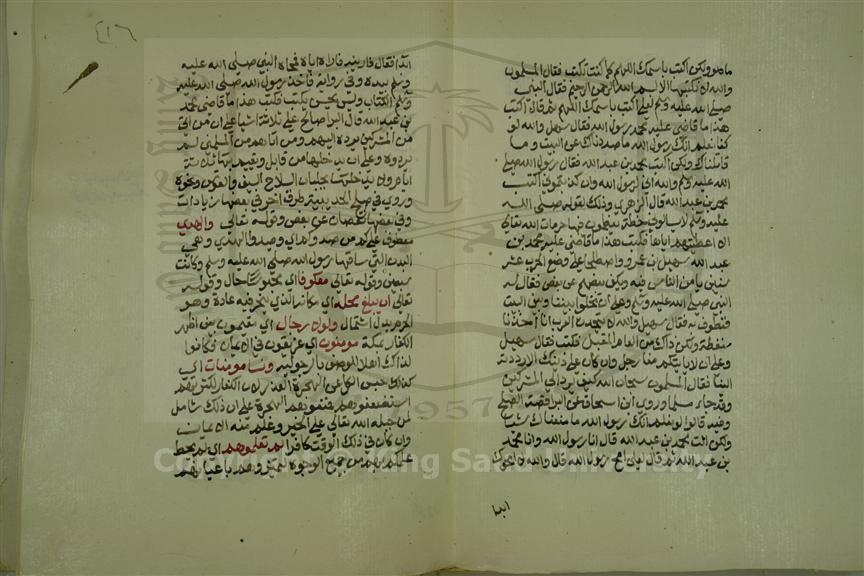 ما هو ولكن اكتب باسمك اللهم كما كنت تكتب فقال المسلمون
والله لا نكتبها الا بسم الله الرحمن الرحيم فقال النبي
صلى الله عليه وسلم لعلي اكتب باسمك اللهم ثم قال اكتب
هذا ما قاضى عليه محمد رسول الله فقال سهيل والله لو
كنا نعلم انك رسول الله ما صددناك عن البيت وما
قاتلناك ولكن اكتب محمد بن عبد الله فقال رسول الله صلى
الله عليه وسلم والله اني لرسول الله وان كذبتموني اكتب
محمد بن عبد الله قال الزهري وذلك لقوله صلى الله
عليه وسلم لا يسالوني خطة يعظمون فيها حرمات الله تعالى
الا اعطيتهم اياها فكتب هذا ما قاضى عليه محمد بن
عبد الله سهيل بن عمرو واصطلحا على وضع الحرب عشر
سنين يامن الناس فيه ويكف بعضهم عن بعض فقال له
النبي صلى الله عليه وسلم وعلى ان تخلوا بيننا وبين البيت
فنطوف به فقال سهيل والله لا تتحدث العرب انا اخذنا
ضغطة ولكن ذاك من العام المقبل فكتب فقال سهيل
وعلى ان لا ياتيك منا رجل وان كان على دينك الا رددته
الينا فقال المسلمون سبحان الله كيف يرد الى المشركين
وقد جاء مسلما وروى ابي اسحاق عن البرا قصة الصلح
وفيه قالوا لو نعلم انك رسول الله ما منعناك شيا
ولكن انت محمد بن عبد الله قال انا رسول الله وانا محمد
بن عبد الله ثم قال لعلي امح رسول الله قال والله لا امحوك
ابدا
٤١٦
ابدا فقال فارنيه فاراه اياه فمحاه النبي صلى الله عليه
وسلم بيده وفي رواية فاخذ رسول الله صلى الله عليه
وسلم الكتاب وليس يحسن يكتب فكتب هذا ما قاضى محمد
بن عبد الله قال البرا صالح على ثلاثة اشيا على ان من اتى
من المشركين يرده اليهم ومن اتاهم من المسلمين لم
يردوه وعلى ان يدخلها من قابل ويقيم بها ثلاثة
ايام ولا يدخلها بجلبان السلاح السيف والقوس ونحوه
وروي في صلح الحديبية طرق اخر في بعضها زيادات
وفي بعضها نقصان عن بعض وقوله تعالى والهدي
معطوف على كم من صدوكم اي وصدوا الهدي وهي
البدن التي ساقها رسول الله صلى الله عليه وسلم وكانت
سبعين وقوله تعالى معكوفا اي محبوسا حال وقوله
تعالى ان يبلغ محله اي مكانه الذي ينحر فيه عادة وهو
الحرم بدل اشتمال ولولا رجال اي مقيمون بين اظهر
الكفار بمكة مومنون اي عريقون في الايمان فكانوا
لذلك اهلا للوصف بالرجولية ونسا مومنات اي
كذلك حبس الكل عن الهجرة العذر لان الكفار لكثرتهم
استضعفوهم فمنعوهم الهجرة على ان ذلك شامل
لمن جبله الله تعالى على الخير وعلم منه الايمان
وان كان في ذلك الوقت كافرا لم تعلموهم اي لم يحط
علمكم بهم من جميع الوجوه لتميزوهم باعيانهم
King Saud University
1957